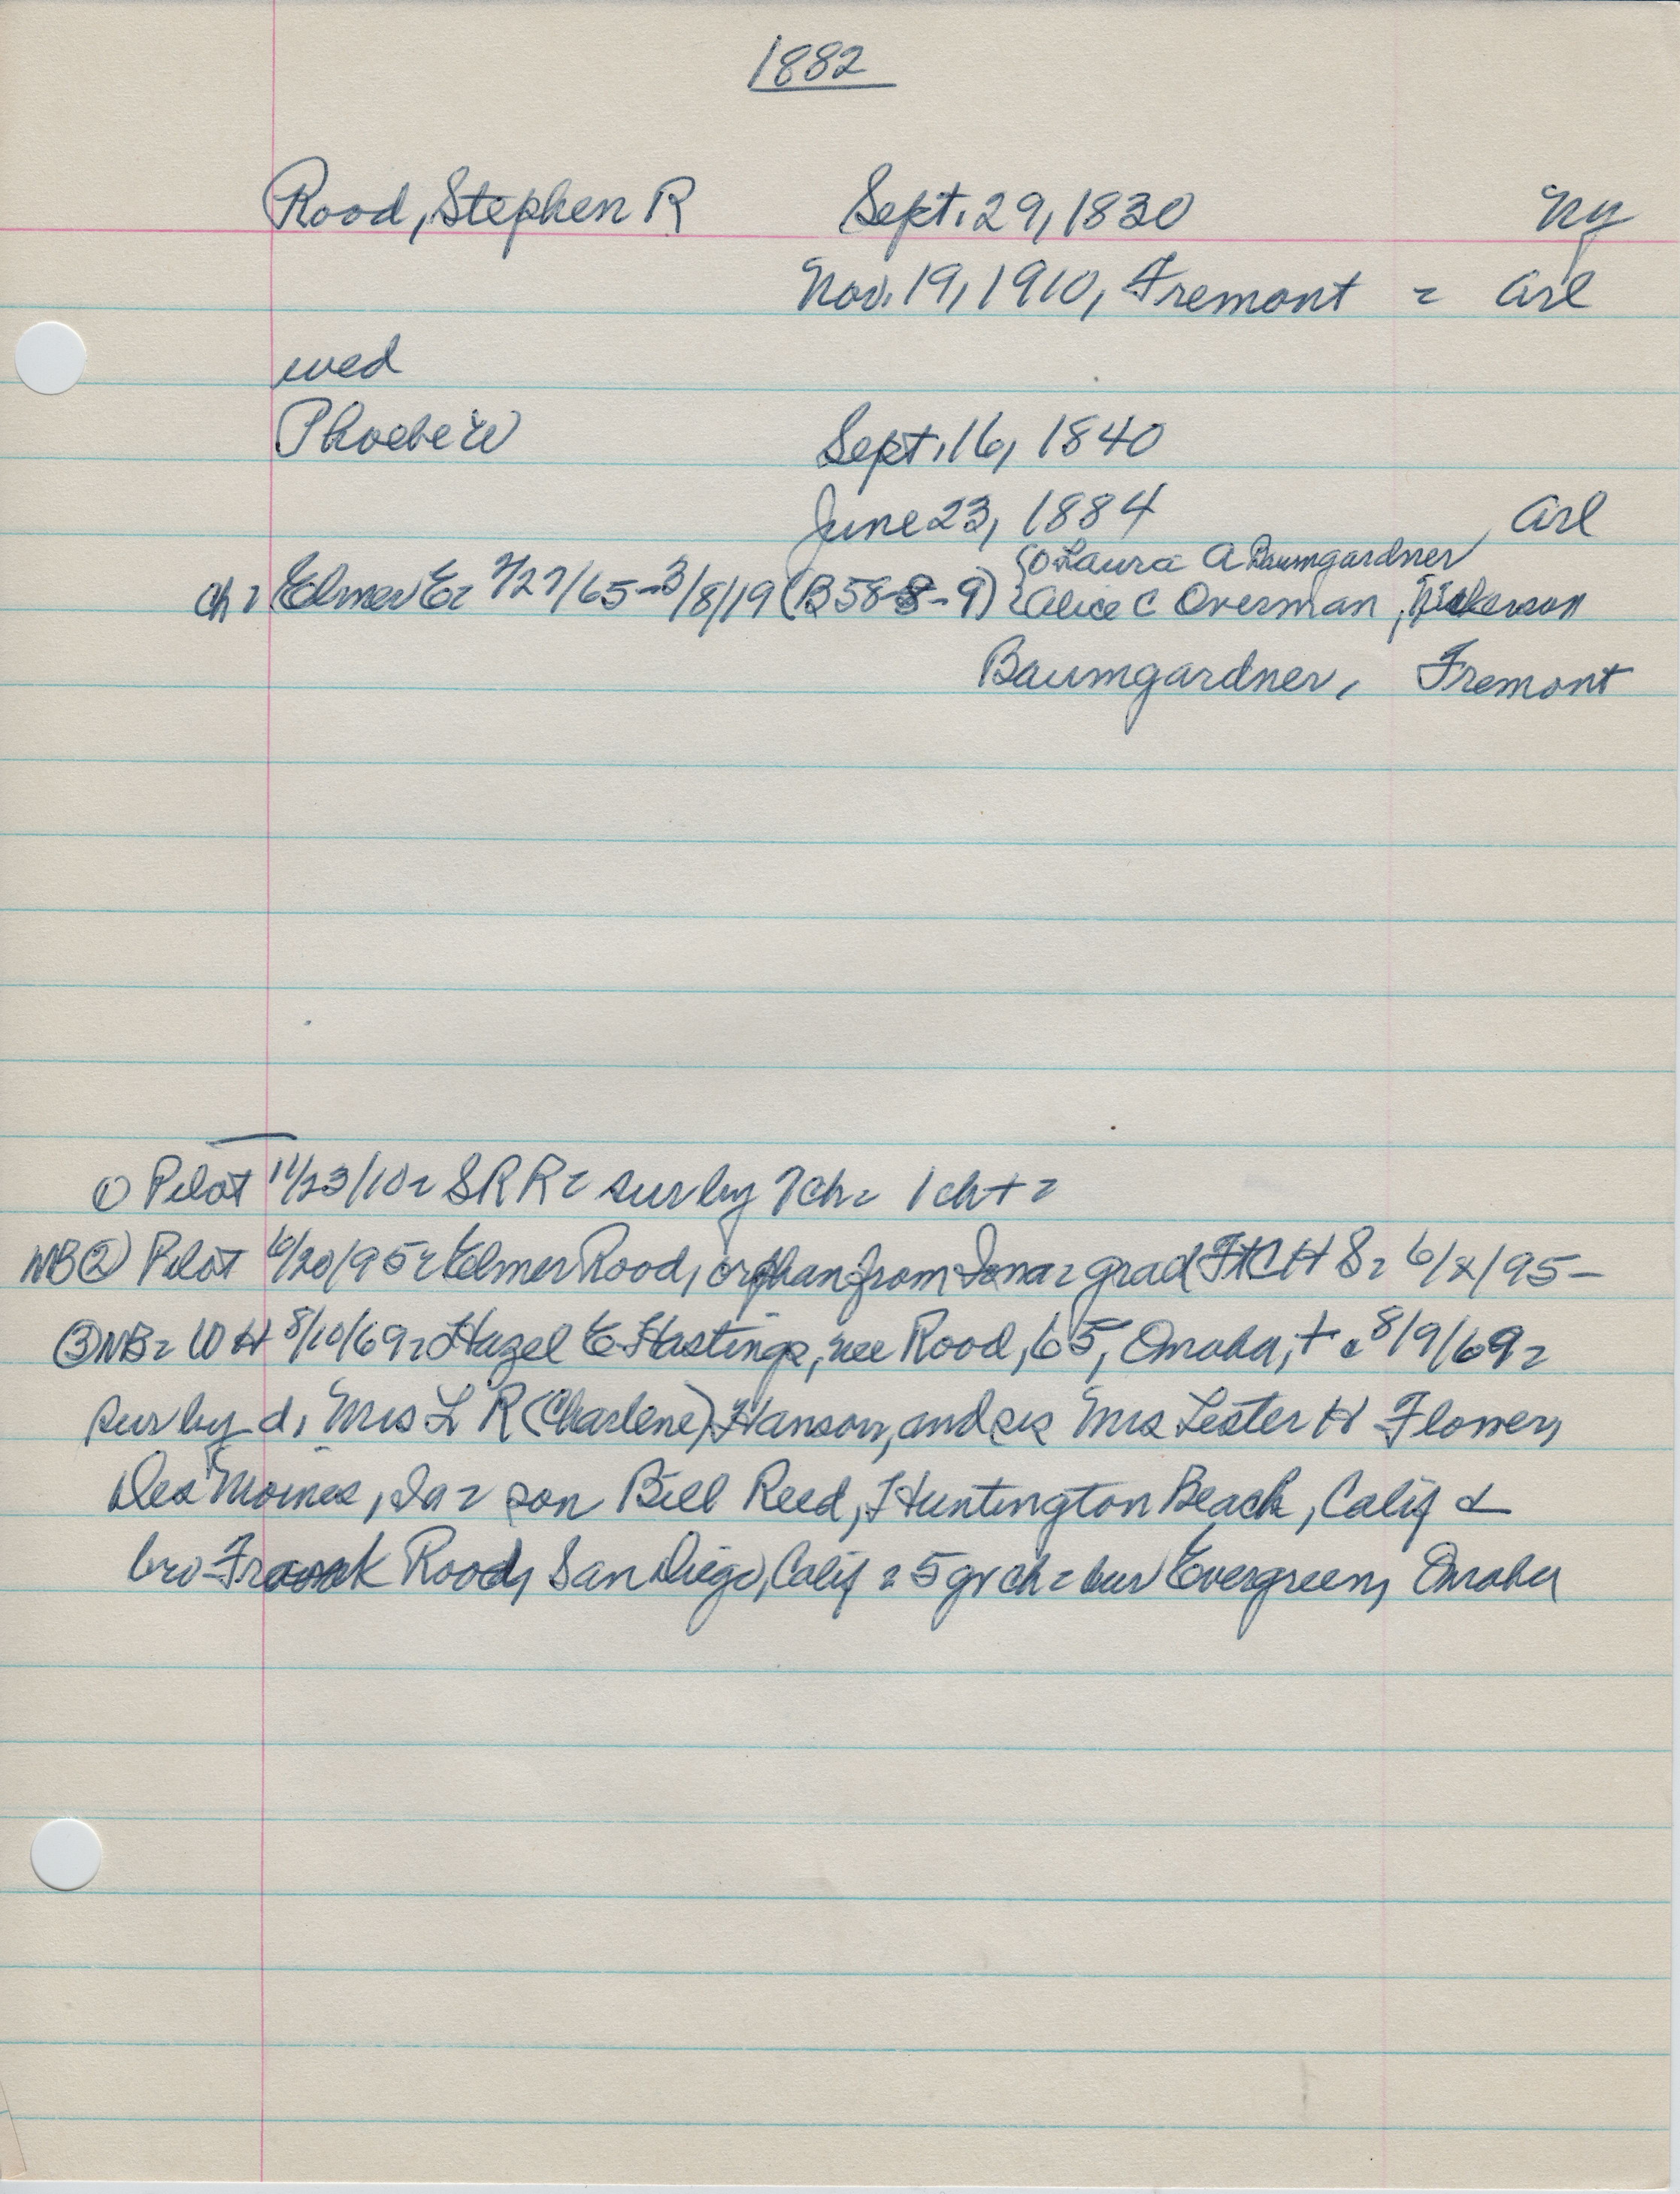 1882
Rood, Stephen R Sept. 29, 1830 NY
Nov. 19, 1910, Fremont = Arl
wed
Phoebe W Sept. 16, 1840
June 23, 1884 Arl
① Laura A Baumgardner
ch = Elmer E = 7/27/65-3/8/19 (B58-8-9) = Alice C Overman, Nickerson
Baumgardner, Fremont
① Pilot 11/23/10 = SRR = sur by 7 ch = 1 ch + =
NB ② Pilot 6/20/95 = Elmer Rood, orphan from = grad H S = 6/x/95-
③ NB = W H 8/10/69 = Hazel E Hastings, nee Rood, 65, Omaha, + c 8/9/69 =
sur by d, Mrs L R (Charlene) Hanson, and sis Mrs Lester H Flowers
Des Moines, Ia = son Bill Reed, Huntington Beach, Calif &
bro Frank Rood, San Diego, Calif = 5 gr ch = bur Evergreen, Omaha